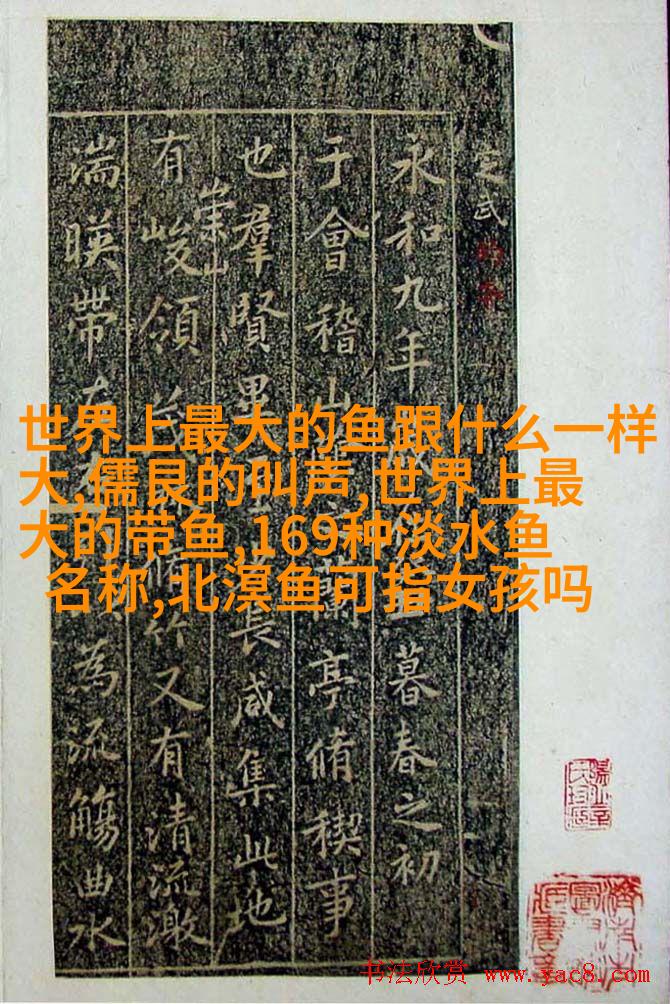 定武
永和九年暮春之初
于會稽山蘭亭脩稧事
也羣賢畢長咸集此地
崇山
有峻領茂脩竹又有清流激
湍暎帶左為流觴曲水
世界上最大的鱼跟什么一样
大,儒艮的叫声,世界上最
大的带鱼,169种淡水鱼
名称,北溟鱼可指女孩吗
书法欣赏 www.yac8.com